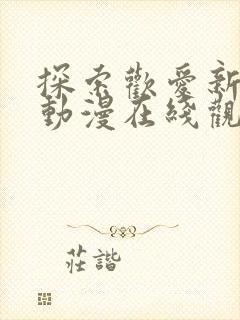 探索歡愛新
動漫在綫觀
莊諧